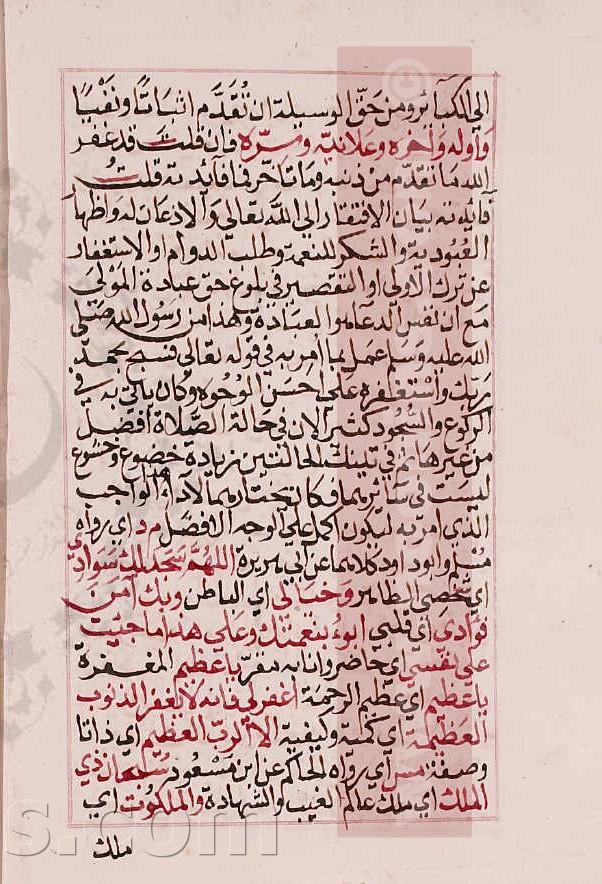 الي الكبائر ومن حق الوسيلة ان تقدم اثباتا ونفيا
واوله واخره وعلانيته وسره فان قلت قد غفر
الله ما تقدم من ذنبه وما تاخر فما فائدته قلت
فائدته بيان الافتقار الي الله تعالي والاذعان له واظهار
العبودية والشكر للنعمة وطلب الدوام او الاستغفار
عن ترك الاولي او التقصير في بلوغ حق عبادة المولي
مع ان نفس الدعا هو العبادة وهذا من رسول الله صلي
الله عليه وسلم عمل بما امر به في قوله تعالي فسبح بحمد
ربك واستغفره علي احسن الوجوه وكان ياتي به في
الركوع والسجود كثيرا لان في حالة الصلاة افضل
من غيرها ثم في تينك الحالتين زيادة خضوع وخشوع
ليست في سائرهما فكان يختارهما لاداء هذا الواجب
الذي امر به ليكون اكمل علي الوجه الافضل م د اي رواه
مسلم وابو داود كلاهما عن ابي هريرة اللهم سجد لك سوادي
اي شخصي الظاهر وخيالي اي الباطن وبك آمن
فؤادي اي قلبي ابوء بنعمتك وعلي هذا ما جنيت
علي نفسي اي حاضر وانا به مقر يا عظيم المغفرة
يا عظيم اي عظيم الرحمة اغفر لي فانه لا يغفر الذنوب
العظيمة اي كمية وكيفية الا الرب العظيم اي ذاتا
وصفة مس اي رواه الحاكم عن ابن مسعود سبحان ذي
الملك اي ملك عالم الغيب والشهادة والملكوت اي
ملك
s.com